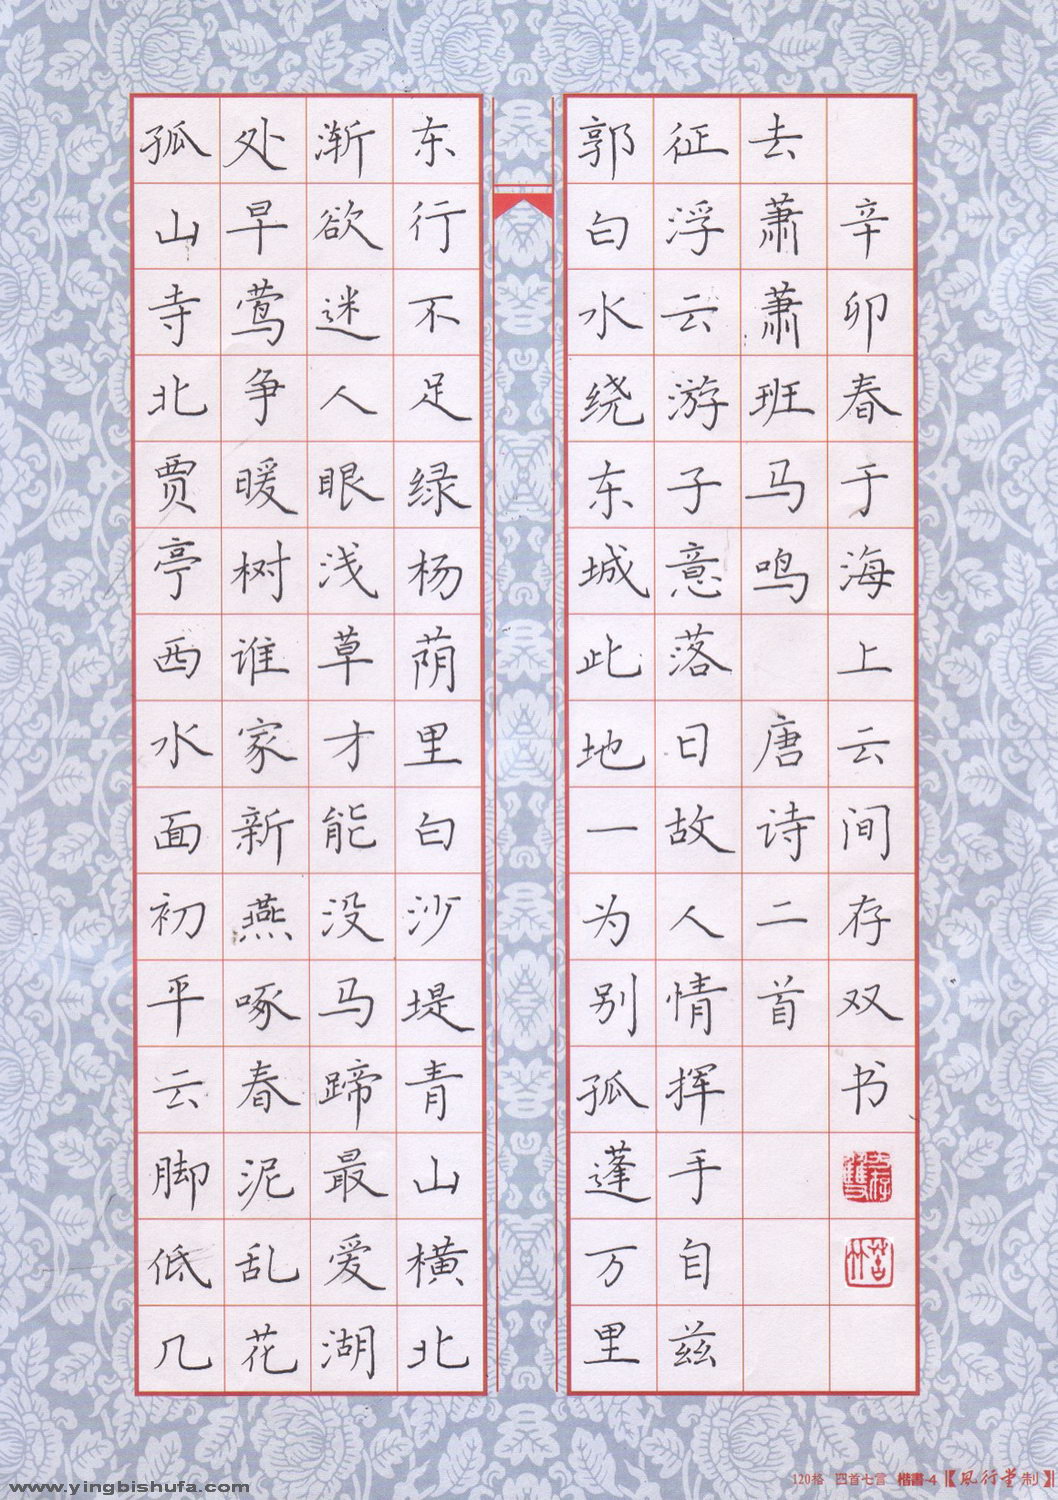 孤山寺北贾亭西水面初平云脚低几
处早莺争暖树谁家新燕啄春泥乱花
渐欲迷人眼浅草才能没马蹄最爱湖
东行不足绿杨荫里白沙堤青山横北
郭白水绕东城此地一为别孤蓬万里
征浮云游子意落日故人情挥手自兹
去萧萧班马鸣 唐诗二首
辛卯春于海上云间存双书
120格 四首七言 楷書-4【風行堂制】
www.yingbishufa.com